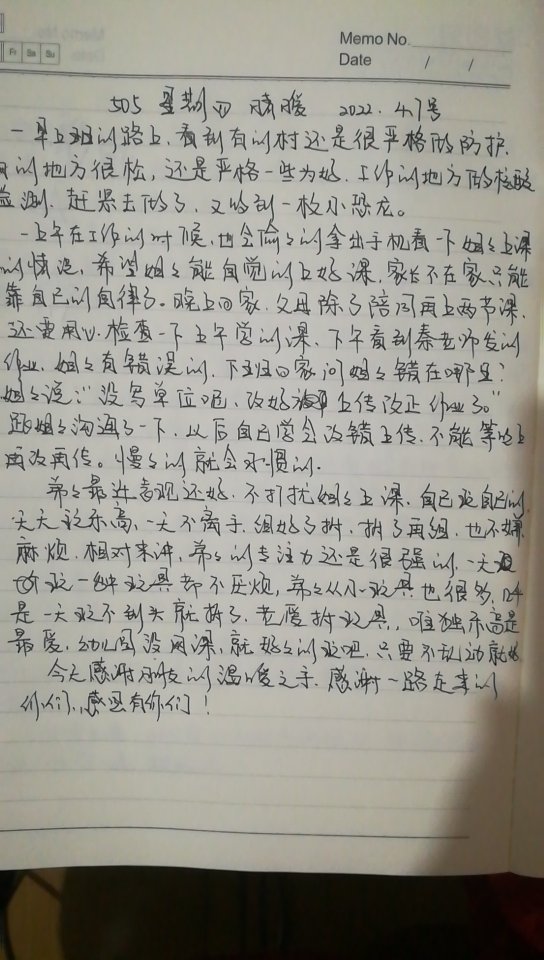 Memo No.
Fr Sa Su
Date / /
505 星期四 晴暖 2022.4.7号
一早上班的路上,看到有的村还是很严格的做防护.
的地方很松,还是严格一些为好.工作的地方做核酸
检测.赶紧去做了,又收到一枚小恐龙。
一上午在工作的时候,也会偷々的拿出手机看一下姐々上课
的情况,希望姐々能自觉的上好课,家长不在家只能
靠自己的自律了。晚上回家,父母除了陪同再上两节课,
还要用心检查一下上午学的课,下午看到秦老师发的
作业,姐々有错误的,下班回家问姐々错在哪里?
姐々说:"没写单位吧,改好 上传改正作业了。"
跟姐々沟通了一下,以后自己学会改错上传,不能等晚上
再改再传。慢々的就会习惯的.
弟々最近表现还好,不打扰姐々上课,自己玩自己的
天天玩乐高,一天不离手,组好了拆,拆了再组,也不嫌
麻烦.相对来讲,弟々的专注力还是很强的,一天
玩一种玩具都不厌烦,弟々从小玩具也很多,
是一天玩不到头就拆了,老爱拆玩具,唯独乐高是
最爱,幼儿园没网课,就好好的玩吧,只要不乱动就好
今天感谢 的温暖之手,感谢一路走来的
你们,感恩有你们!